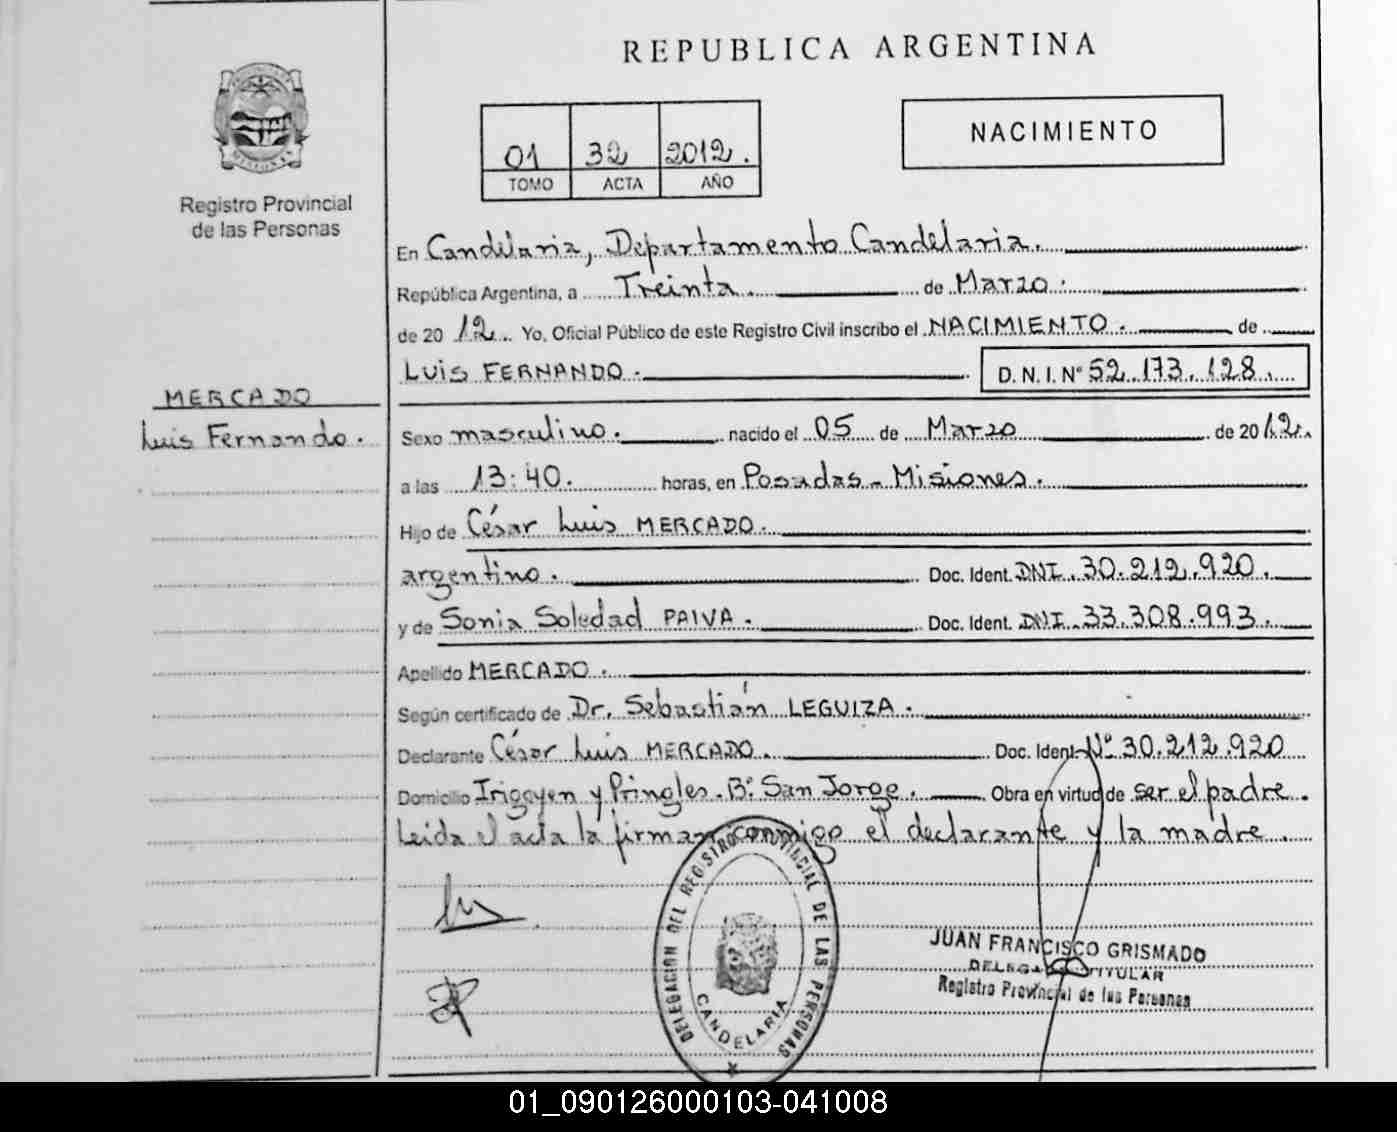 REPUBLICA ARGENTINA
MISIONES
Registro Provincial
de las Personas
01 32 2012.
TOMO ACTA AÑO
NACIMIENTO
En Candelaria, Departamento Candelaria.
República Argentina, a Treinta. de Marzo.
de 2012. Yo, Oficial Público de este Registro Civil inscribo el NACIMIENTO. de
LUIS FERNANDO. D. N. I. Nº 52.173.128.
MERCADO
Luis Fernando.
Sexo masculino. nacido el 05 de Marzo de 2012.
a las 13:40. horas, en Posadas - Misiones.
Hijo de César Luis MERCADO.
argentino. Doc. Ident. DNI. 30.212.920.
y de Sonia Soledad PAIVA. Doc. Ident. DNI. 33.308.993.
Apellido MERCADO.
Según certificado de Dr. Sebastián LEGUIZA.
Declarante César Luis MERCADO. Doc. Ident. Nº 30.212.920
Domicilio Irigoyen y Pringles. Bº San Jorge. Obra en virtud de ser el padre.
Leida el acta la firman conmigo el declarante y la madre.
DELEGACION DEL REGISTRO PROVINCIAL DE LAS PERSONAS
CANDELARIA
JUAN FRANCISCO GRISMADO
DELEGADO TITULAR
Registro Provincial de las Personas
01_090126000103-041008